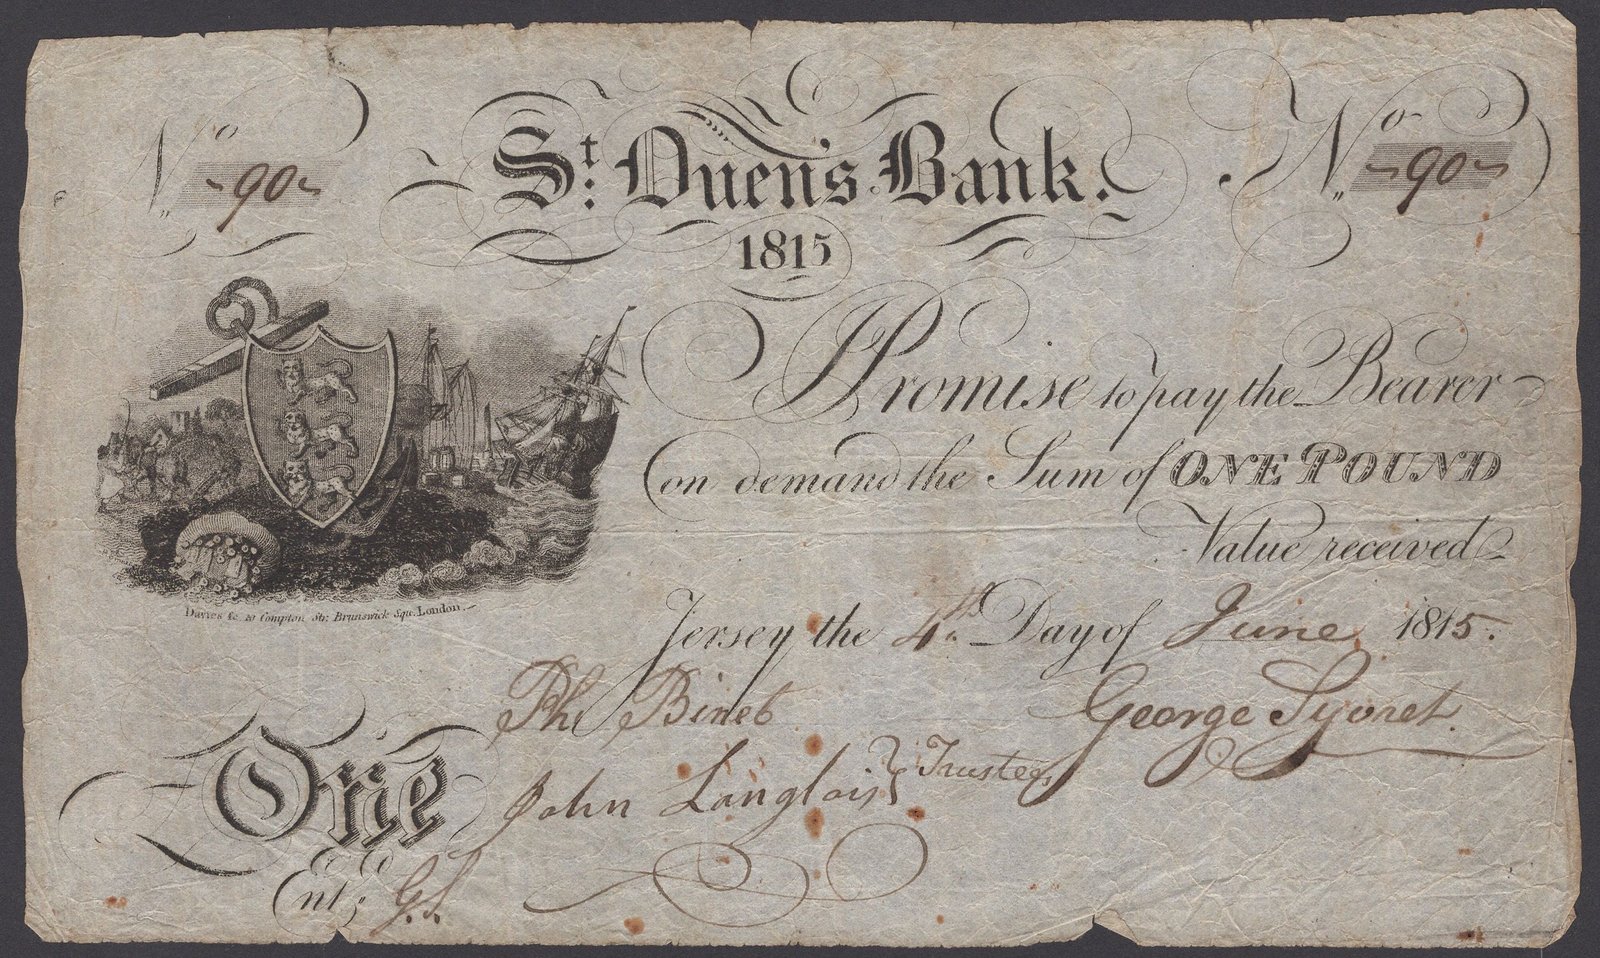 No 90
St. Ouen's Bank.
No 90
1815
I Promise to pay the Bearer
on demand the Sum of ONE POUND
Value received
Davies Sc. 10 Compton Str: Brunswick Squ: London.
Jersey the 4th Day of June 1815.
Ph: Binet
George Syvret
John Langlois } Trustees
One
Entd. G.S.